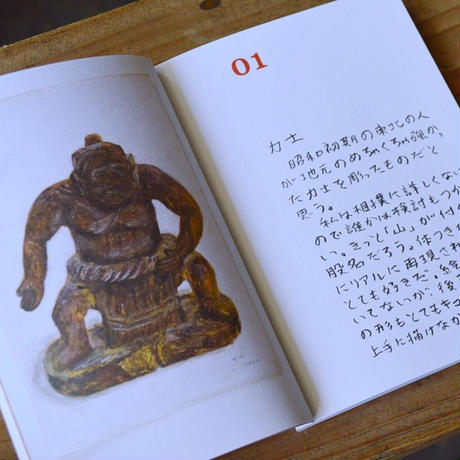 01
力士
昭和初期の東北の人
が地元のめちゃくちゃ強か
った力士を彫ったものだと
思う。
私は相撲に詳しくない
ので誰かは検討もつか
い。きっと「山」が付く
股名だろう。体つきが
にリアルに再現され
とても好きだ。絵
いてないが、後
の形もとてもキマ
上手に描けなか